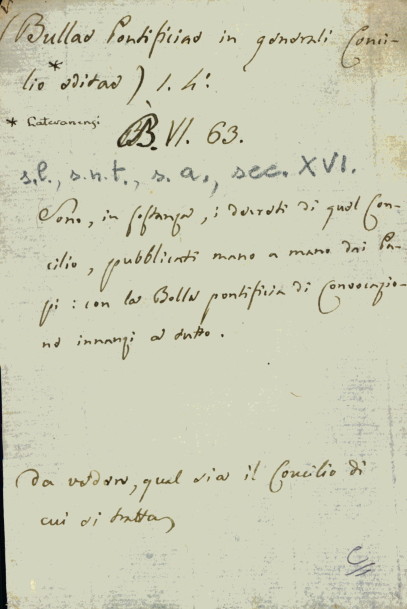 (Bullae Pontificiae in generali Conci-
lio * editae) 1. 4.°
* Lateranensi
B. VI. 63.
s.l., s.n.t., s.a., sec. XVI.
Sono, in sostanza, i decreti di quel Con-
cilio, pubblicati mano a mano dai Pa-
pi: con la Bolla pontificia di Convocazio-
ne innanzi a tutto.
Da vedere, qual sia il Concilio di
cui si tratta